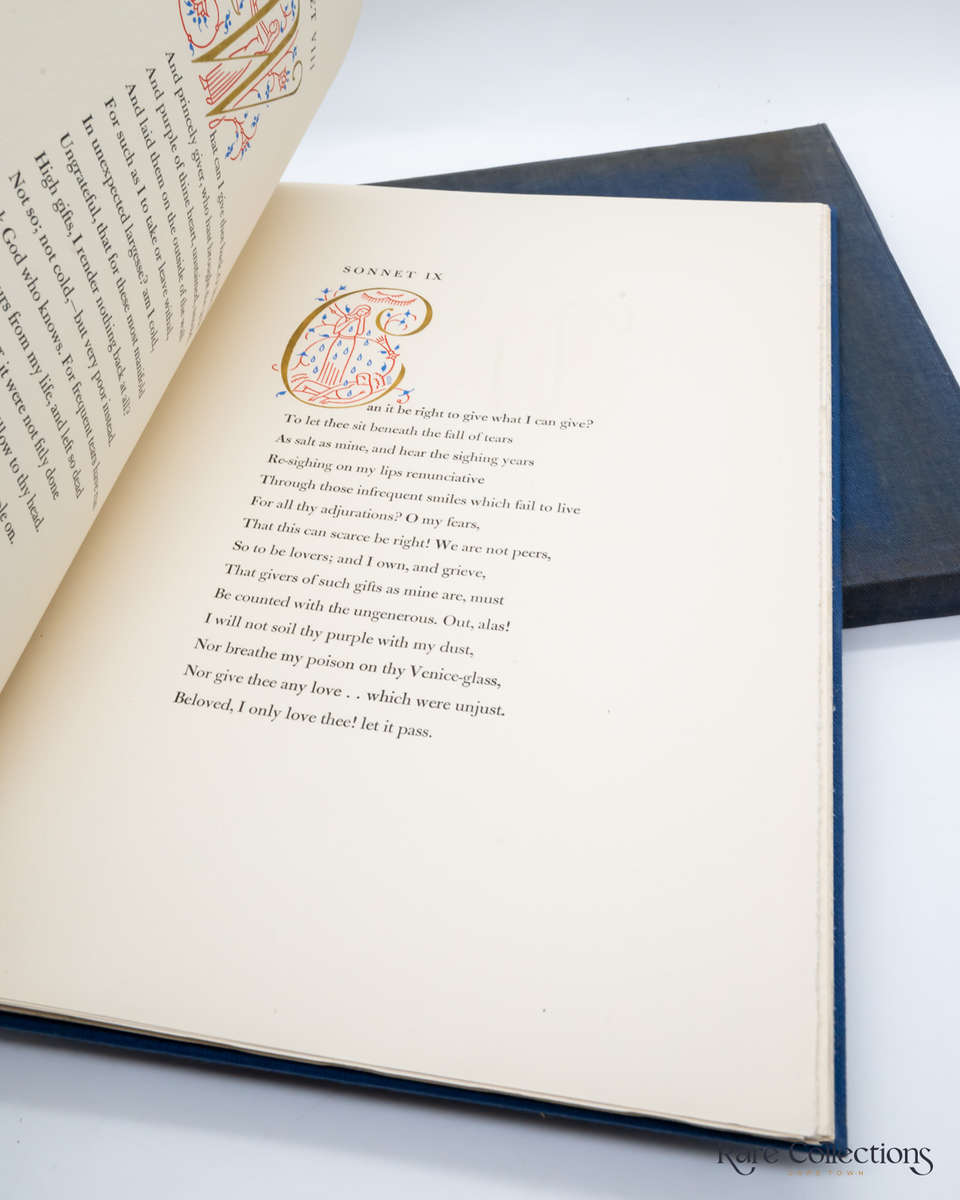 ET VIII
What can I give thee back,
And princely giver, who hast brought
And purple of thine heart, unstained,
And laid them on the outside of the wall
For such as I to take or leave withal,
In unexpected largesse? am I cold,
Ungrateful, that for these most manifold
High gifts, I render nothing back at all?
Not so; not cold,—but very poor instead.
God who knows. For frequent tears have
from my life, and left so dead
it were not fitly done
to thy head.
on.
SONNET IX
Can it be right to give what I can give?
To let thee sit beneath the fall of tears
As salt as mine, and hear the sighing years
Re-sighing on my lips renunciative
Through those infrequent smiles which fail to live
For all thy adjurations? O my fears,
That this can scarce be right! We are not peers,
So to be lovers; and I own, and grieve,
That givers of such gifts as mine are, must
Be counted with the ungenerous. Out, alas!
I will not soil thy purple with my dust,
Nor breathe my poison on thy Venice-glass,
Nor give thee any love . . which were unjust.
Beloved, I only love thee! let it pass.
Rare Collections
CAPE TOWN